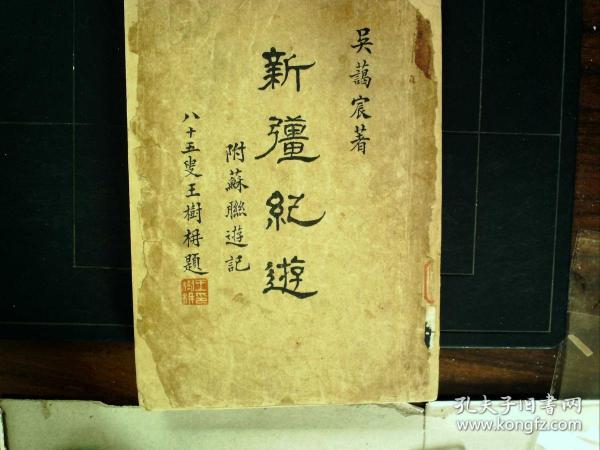 吳藹宸著
新疆紀遊
附蘇聯遊記
八十五叟王樹枏題
孔夫子旧书网
www.kongfz.com